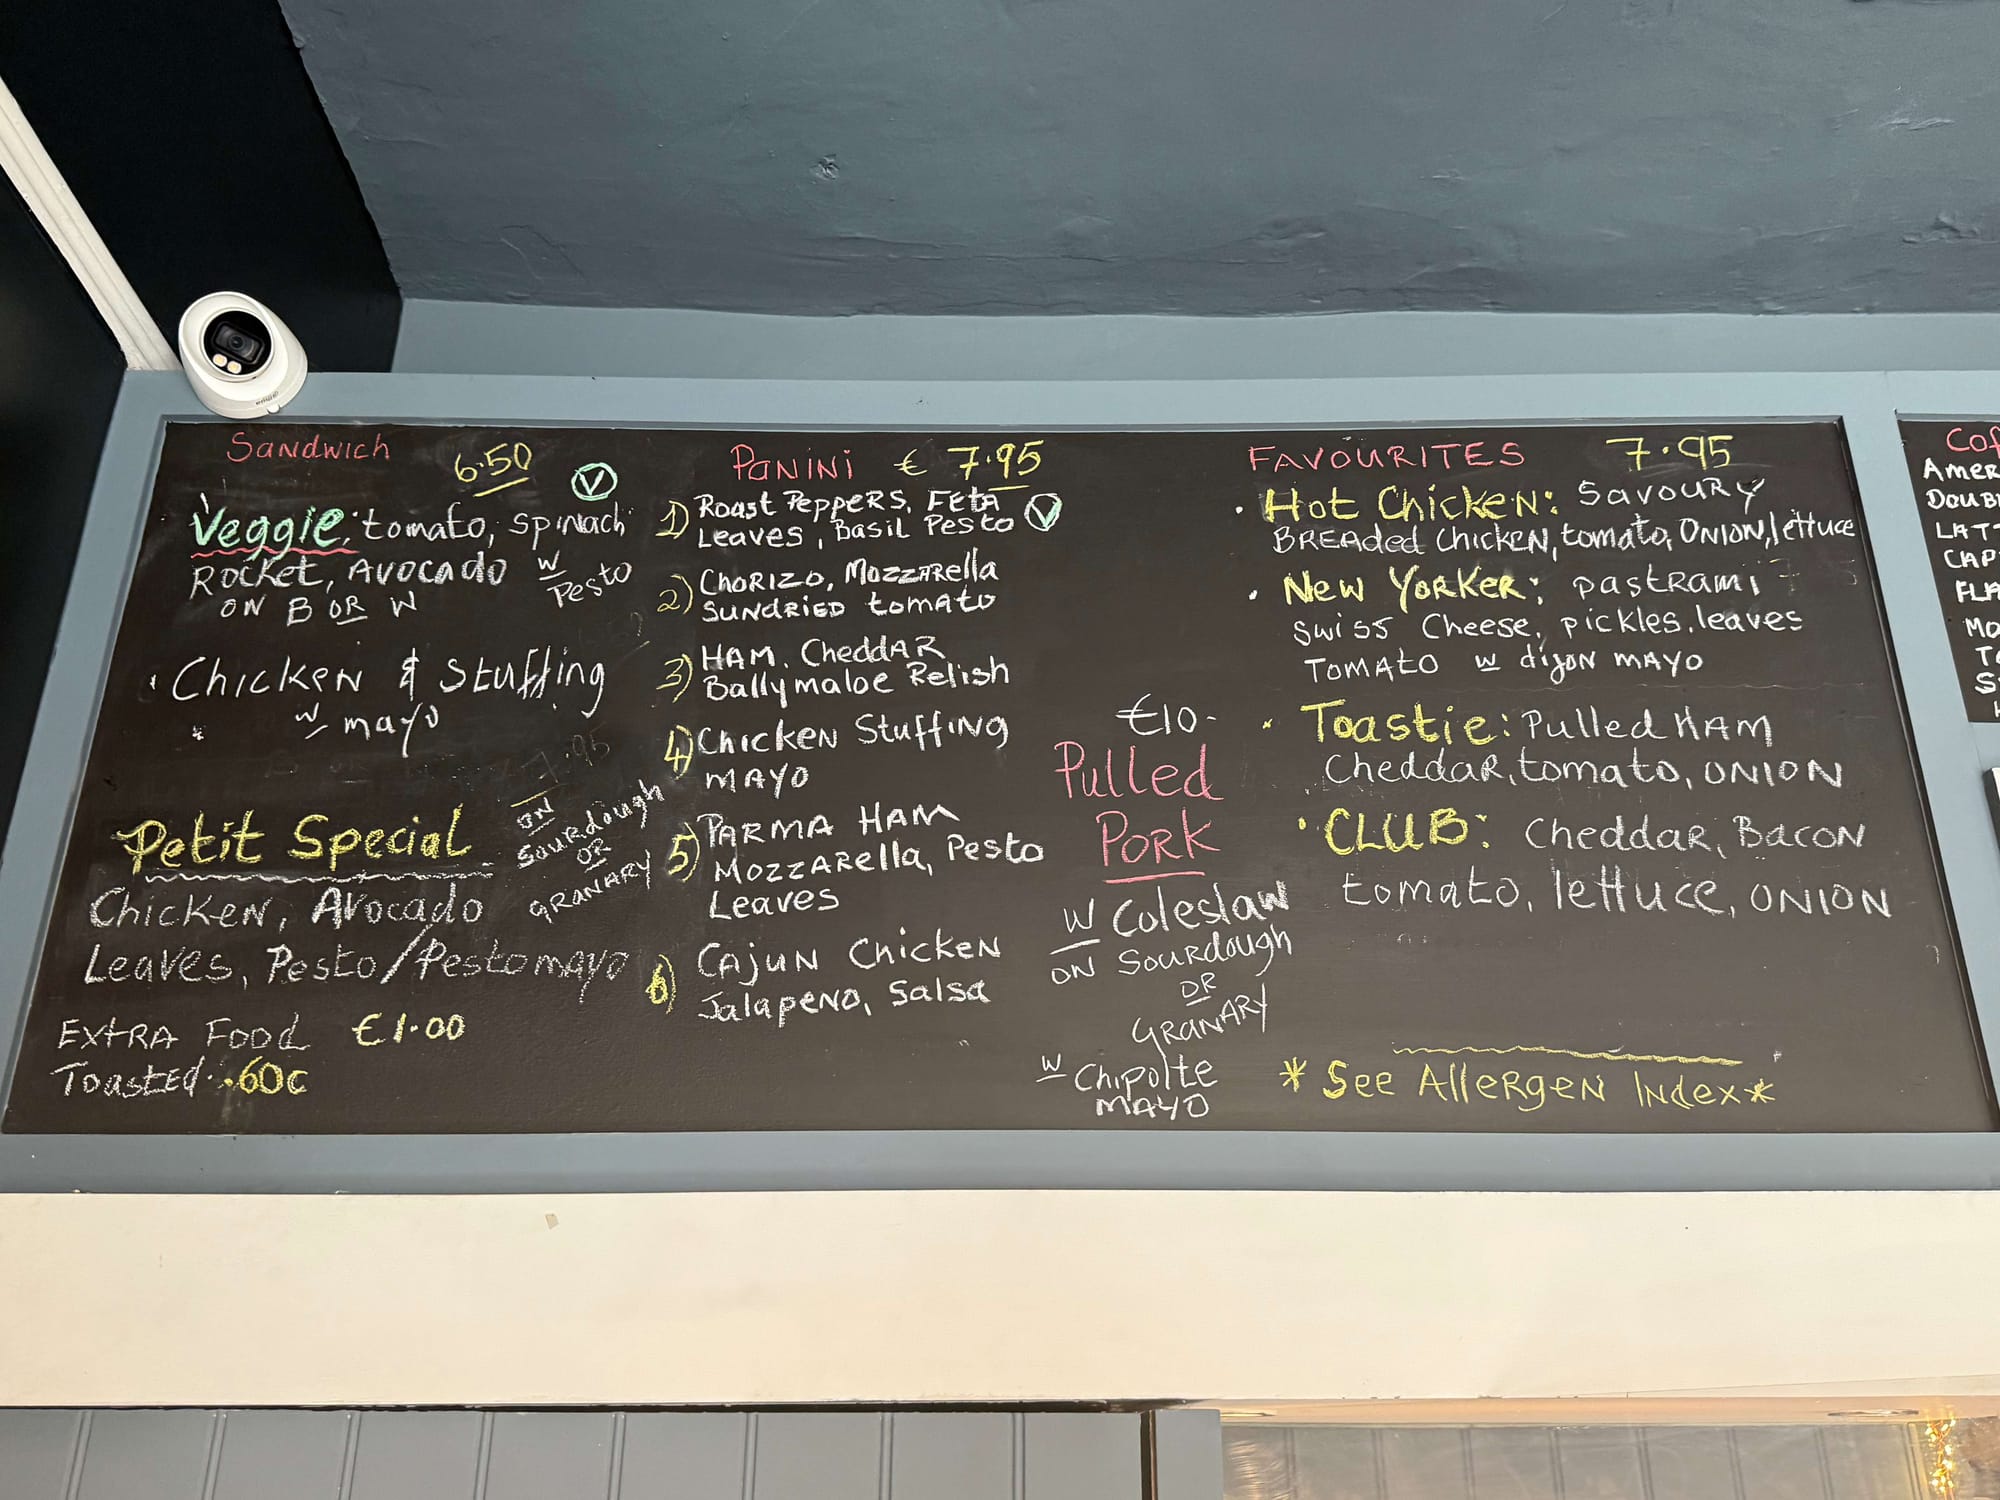 Sandwich 6.50
V
Veggie: tomato, spinach
Rocket, Avocado w Pesto
on B or W
Chicken & Stuffing
w mayo
7.95
on
Sourdough
or
Granary
Petit Special
Chicken, Avocado
Leaves, Pesto/Pestomayo
Extra Food €1.00
Toasted .60c
Panini € 7.95
1) Roast Peppers, Feta
Leaves, Basil Pesto V
2) Chorizo, Mozzarella
Sundried tomato
3) Ham, Cheddar
Ballymaloe Relish
4) Chicken Stuffing
Mayo
5) Parma Ham
Mozzarella, Pesto
Leaves
6) Cajun Chicken
Jalapeno, Salsa
€10-
Pulled
Pork
w Coleslaw
on Sourdough
or
Granary
w Chipolte
Mayo
FAVOURITES 7.95
• Hot Chicken: Savoury
Breaded Chicken, tomato, Onion, lettuce
• New Yorker: pastrami
Swiss Cheese, pickles, leaves
Tomato w dijon mayo
• Toastie: Pulled Ham
Cheddar, tomato, onion
• CLUB: Cheddar, Bacon
tomato, lettuce, onion
*See Allergen Index*